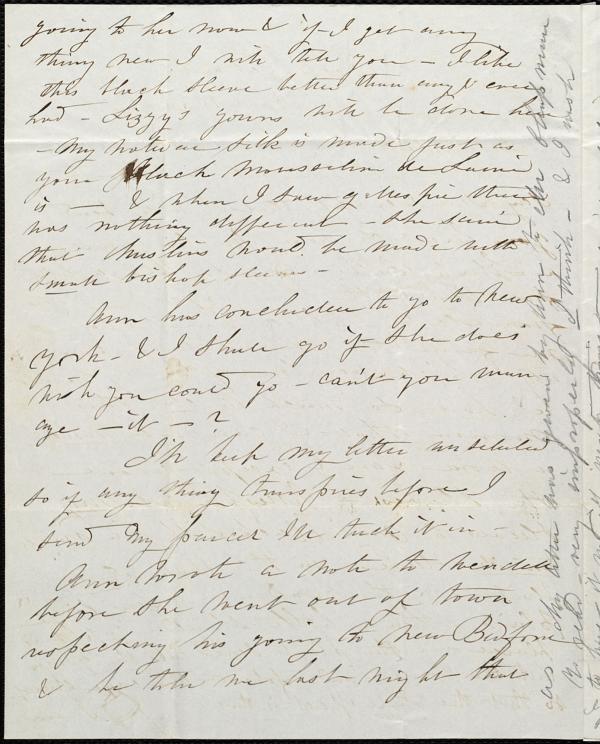 going to her now & if I get any
thing new I will tell you – I like
this black sleeve better than any I ever
had – Lizzy's gowns will be done here
– My natural silk is made just as
your black Mousseline de Laine
is – & when I saw gillespie there
was nothing different – she said
that muslins would be made with
small bishop sleeves –
Ann has concluded to go to New
york – & I shall go if she does
wish you could go – can't you man
age – it – ?
I'll keep my letter unsealed
so if any thing transpires before I
send my parcel I'll tuck it in –
Ann wrote a note to Wendell
before she went out of town
respecting his going to New Bedford
& he told me last night that
as my letter was given by Ann to
& very improperly I think – & I wish